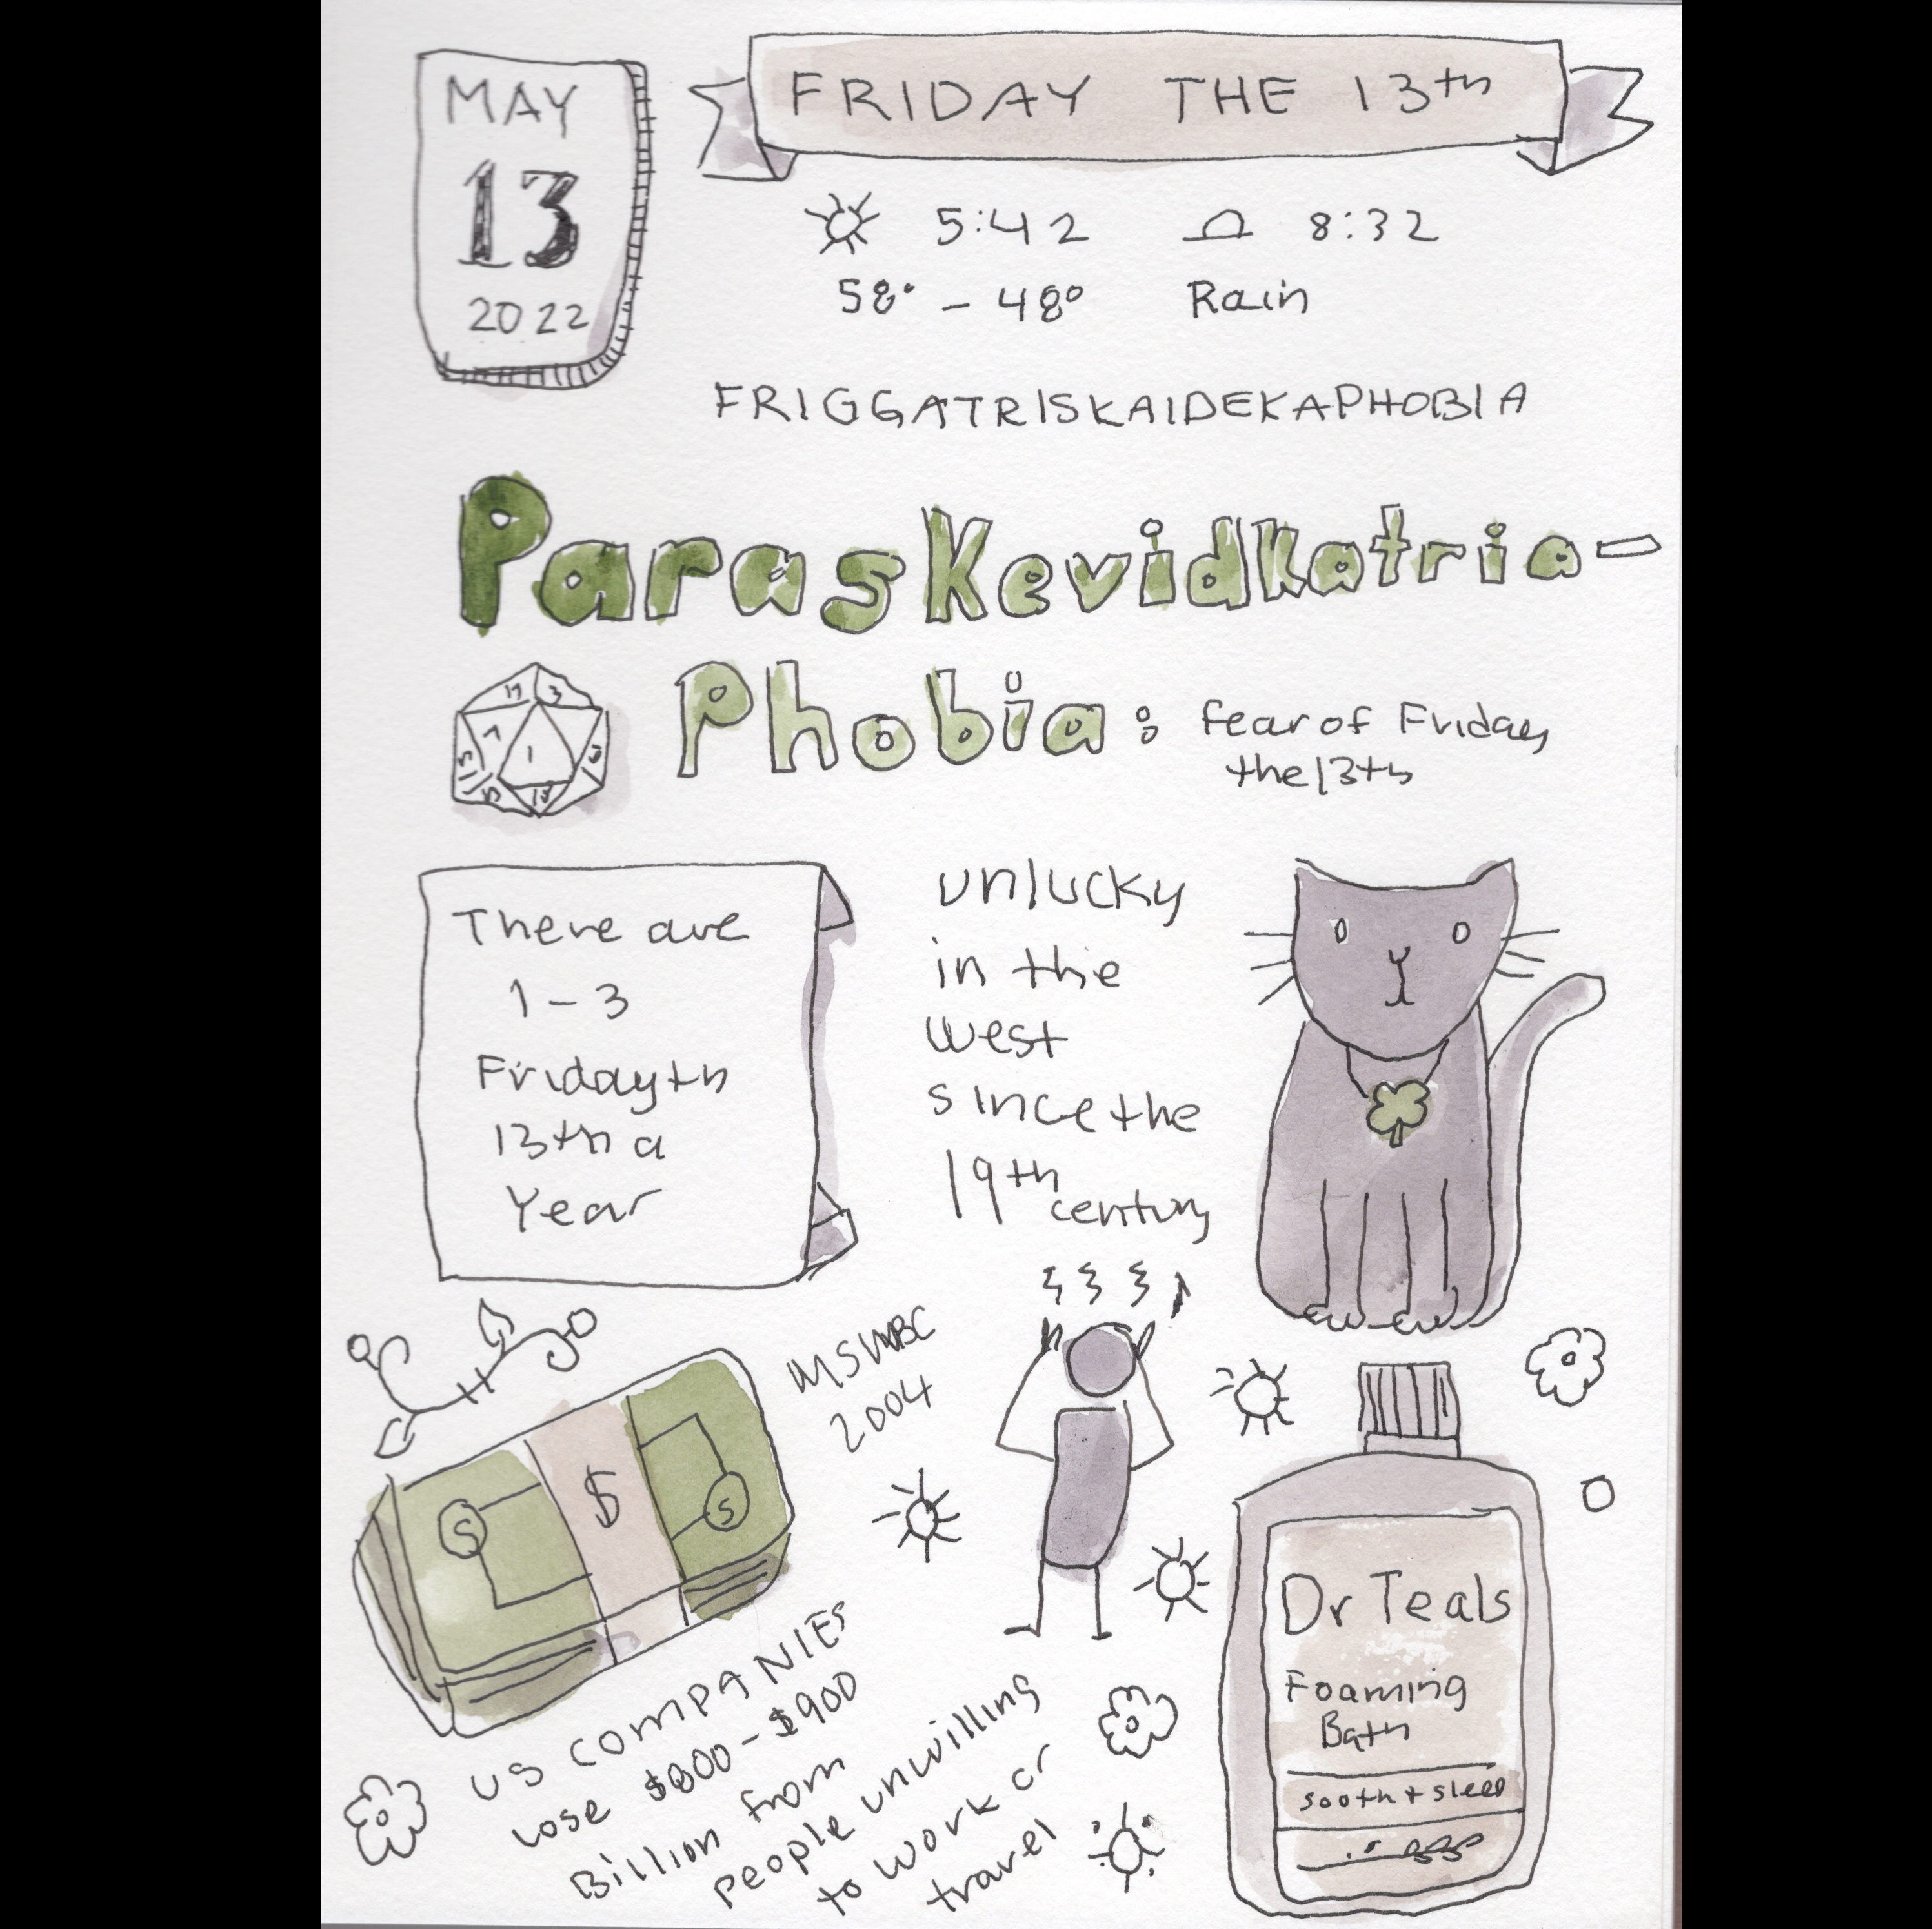 MAY
13
2022
FRIDAY THE 13th
5:42 8:32
58° - 48° Rain
FRIGGATRISKAIDEKAPHOBIA
Paraskevidkatria-
Phobia: fear of Friday
the 13th
17 3
7
1
There are
1-3
Friday th
13th a
Year
unlucky
in the
west
since the
19th
century
MSNBC
2004
$
S
S
US COMPANIES
lose $800-$900
Billion from
People unwilling
to work or
travel
Dr Teals
Foaming
Bath
sooth + sleep